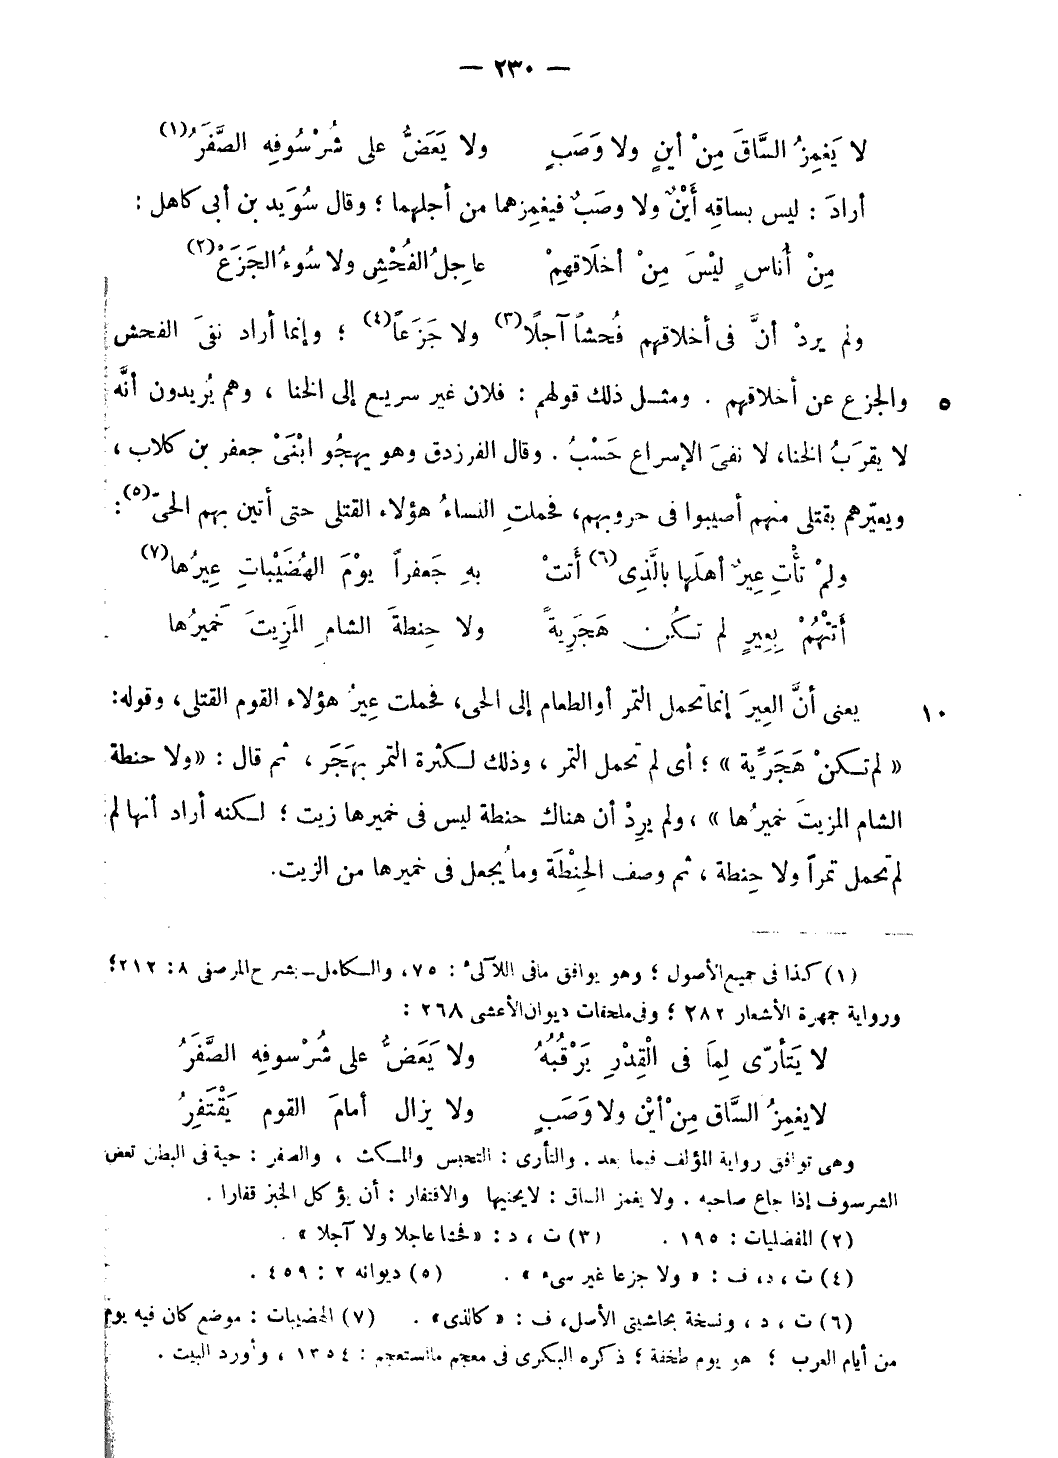 — ٢٣٠ —
لا يَغمِزُ السَّاقَ مِنْ أينٍ ولا وَصَبٍ ولا يَعَضُّ على شُرْسُوفِه الصَّفَرُ(١)
أرادَ : ليس بساقِه أَيْنٌ ولا وصَبٌ فيغمِزهما من أجلهما ؛ وقال سُوَيد بن أبى كاهل :
مِنْ أُناسٍ ليْسَ مِنْ أخلَاقهِمْ عاجِلُ الفُحْشِ ولا سُوءُ الجَزَعْ(٢)
ولم يردْ أنَّ فى أخلاقهم فُحشاً آجلًا(٣) ولا جَزَعاً(٤) ؛ وإنما أراد نفىَ الفحش
٥ والجزع عن أخلاقهم . ومثل ذلك قولهم : فلان غير سريع إلى الخنا ، وهم يُريدون أنَّه
لا يقرَبُ الخنا، لا نفىَ الإسراع حَسْبُ . وقال الفرزدق وهو يهجُو ابْنَىْ جعفر بن كلاب ،
ويعيّرهم بقتلى منهم أصيبوا فى حروبهم، فحملتِ النساءُ هؤلاء القتلى حتى أتين بهم الحىّ(٥):
ولمْ تأْتِ عِيرٌ أهلَها بالَّذِى(٦) أَتتْ بهِ جَعفراً يوْمَ الهُضَيْباتِ عِيرُها(٧)
أَتتْهُمْ بِعِيرٍ لم تكُن هَجَرِيةً ولا حِنطةَ الشامِ المَزِيتَ خَميرُها
١٠ يعنى أنَّ العِيرَ إنما تحمل التمر أو الطعام إلى الحى، فحملت عِيرُ هؤلاء القوم القتلى، وقوله:
« لم تكنْ هَجَرِّية » ؛ أى لم تحمل التمر ، وذلك لكثرة التمر بِهَجَر ، ثم قال : «ولا حنطة
الشام المزيتَ خميرُها » ، ولم يرِدْ أن هناك حنطة ليس فى خميرها زيت ؛ لكنه أراد أنها لم
لم تحمل تمراً ولا حِنطة ، ثم وصف الحِنْطَة وما يُجعل فى خميرها من الزيت.
(١) كذا فى جميع الأصول ؛ وهو يوافق مافى اللآلى‌ء : ٧٥، والكامل ــ بشرح المرصفى ٨: ٢١٢؛
ورواية جمهرة الأشعار ٢٨٢ ؛ وفى ملحقات ديوان الأعشى ٢٦٨ :
لا يَتأرّى لِمَا فى الْقِدْرِ يَرْقُبُهُ ولا يَعَضُّ على شُرْسوفه الصَّفَرُ
لايغمِزُ السَّاق مِنْ أيْن ولا وَصَبٍ ولا يزال أمامَ القوم يَقْتَفِرُ
وهى توافق رواية المؤلف فيما بعد . والتأرى : التحبس والمكث ، والصفر : حية فى البطن تعض
الشرسوف إذا جاع صاحبه . ولا يغمز الساق : لايحنيها والاقتفار : أن يؤكل الخبز قفارا .
(٢) المفضليات : ١٩٥ . (٣) ت ، د : «فحشا عاجلا ولا آجلا » .
(٤) ت ، د، ف : « ولا جزعا غير سىء » . (٥) ديوانه ٢ : ٤٥٩ .
(٦) ت ، د ، ونسخة بحاشيتى الأصل، ف : « كالذى» . (٧) الهضيبات : موضع كان فيه يوم
من أيام العرب ؛ هو يوم طخفة ؛ ذكره البكرى فى معجم مااستعجم : ١٣٥٤ ، وأورد البيت .